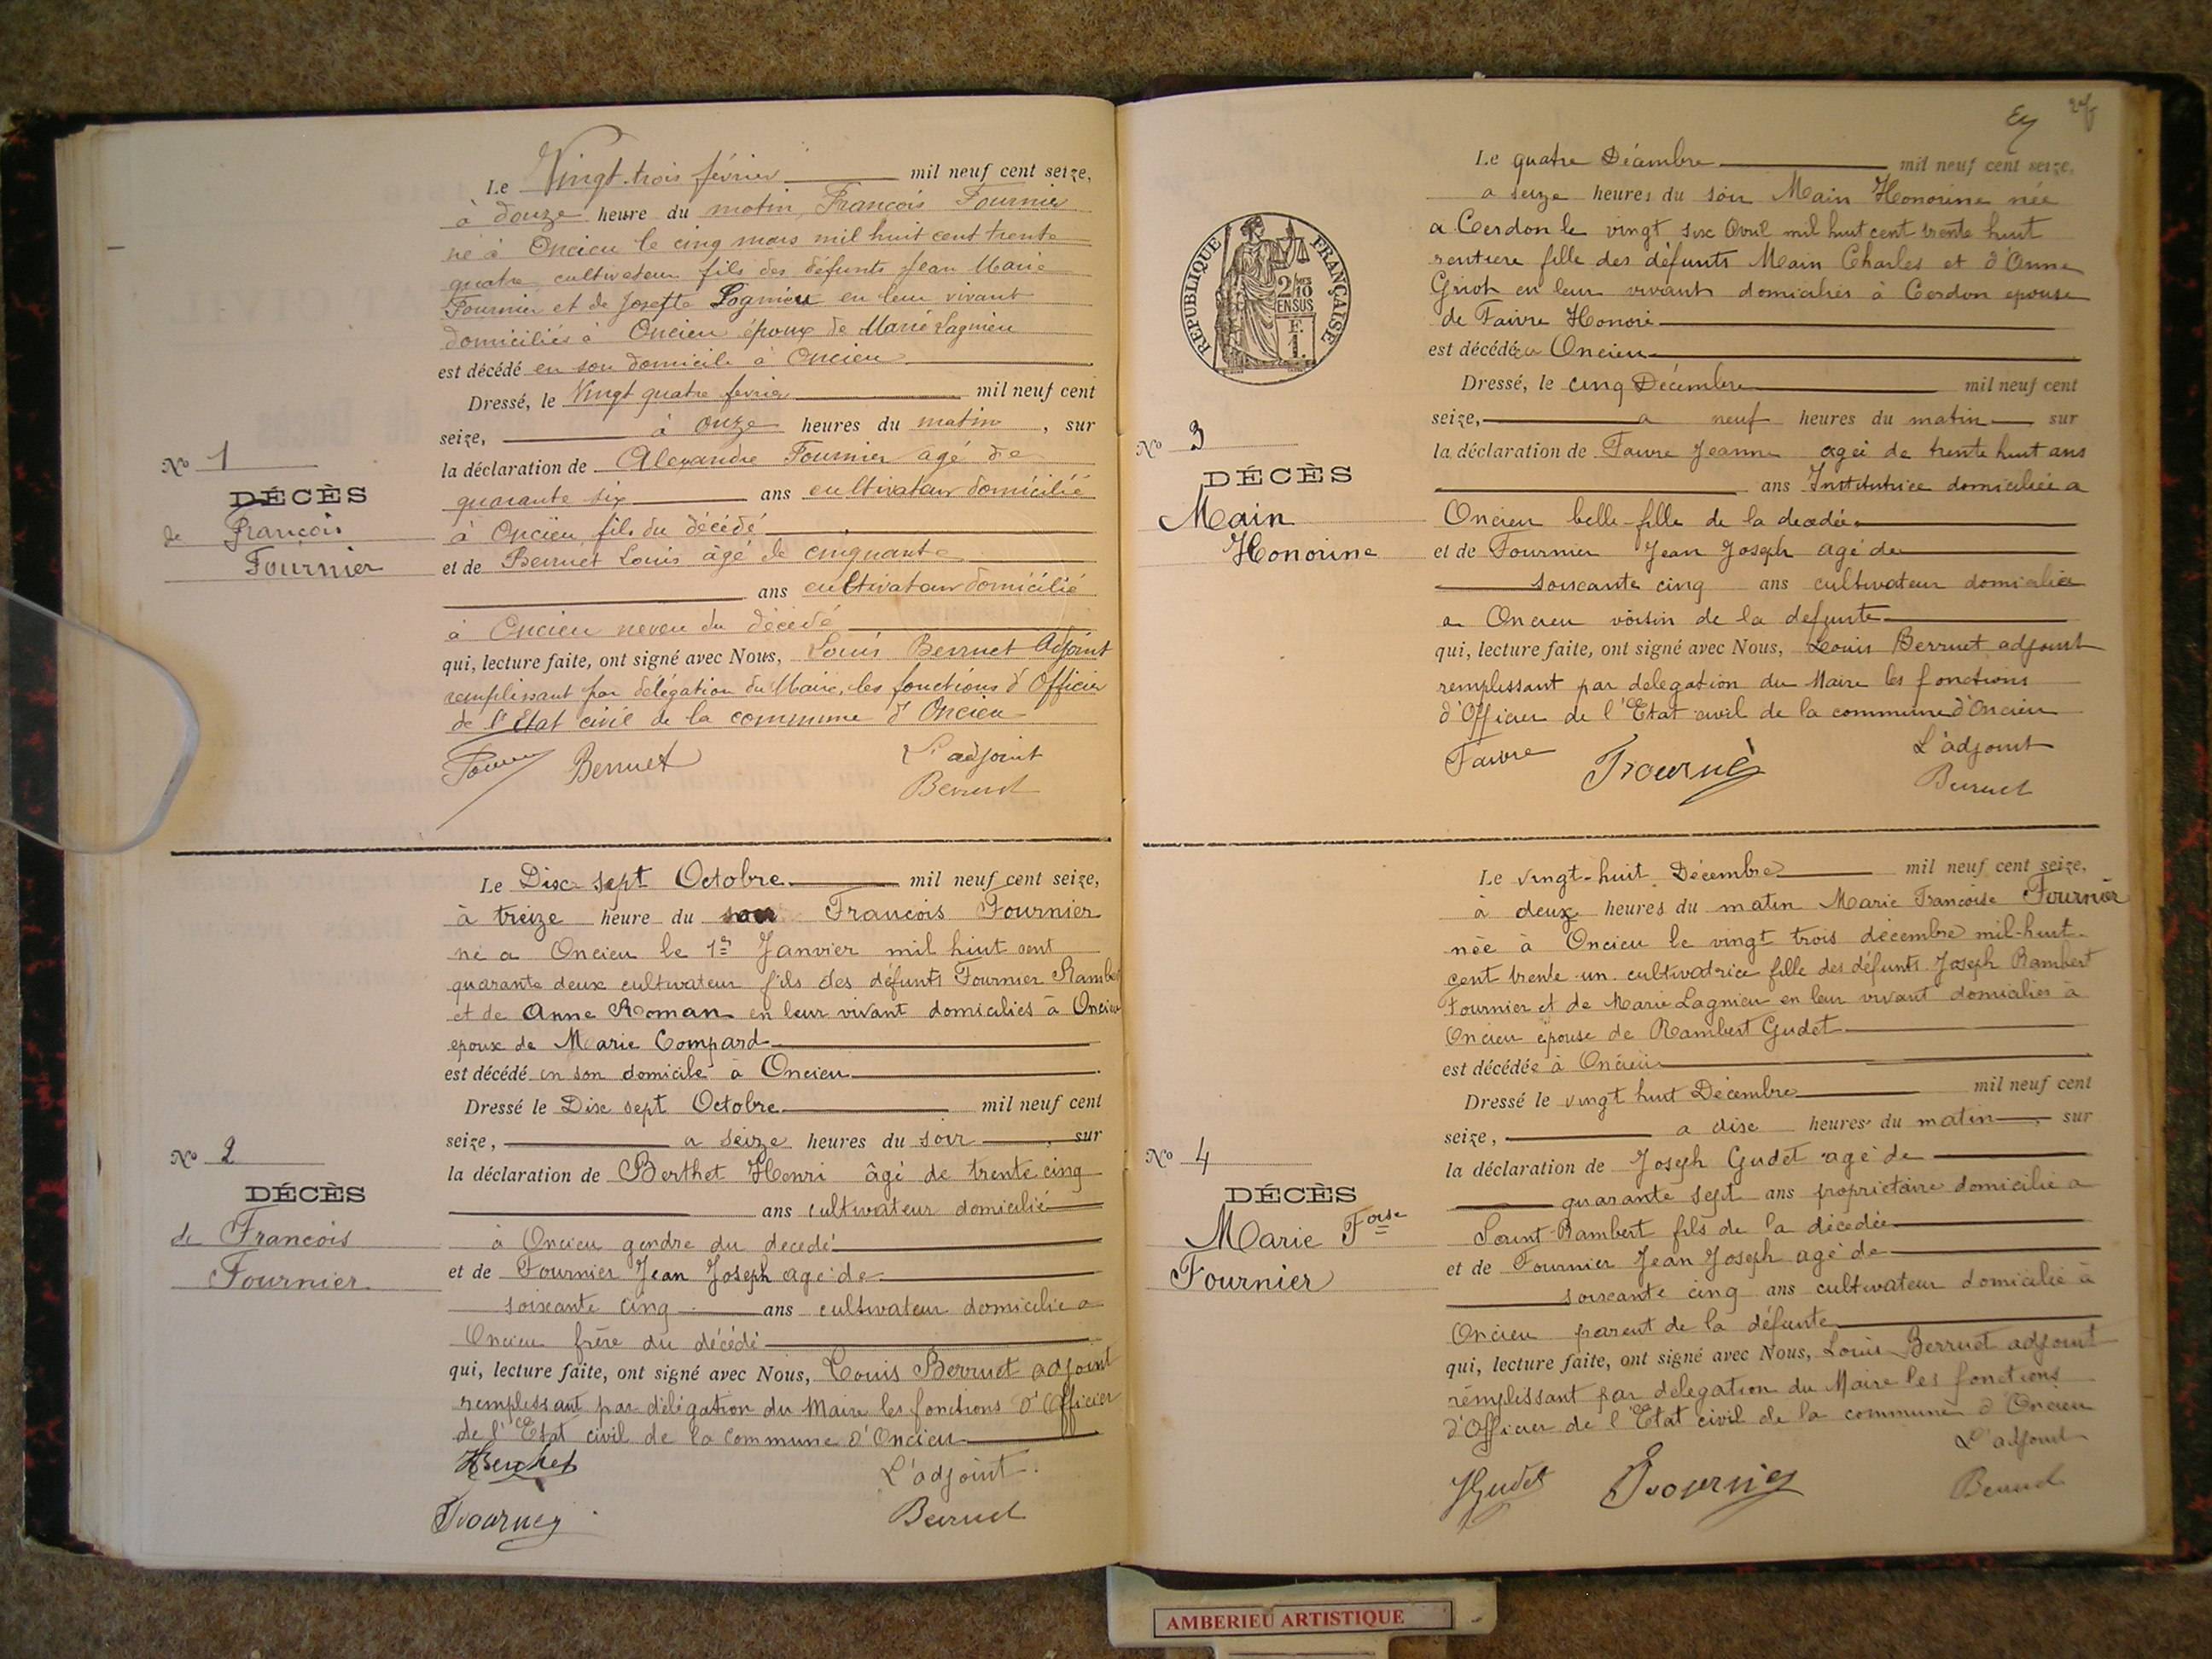 Le Vingt-trois février mil neuf cent seize,
à douze heure du matin, François Fournier
né à Oncieu le cinq mars mil huit cent trente
quatre, cultivateur fils des défunts Jean Marie
Fournier et de Josette Lagnieu en leur vivant
domiciliés à Oncieu époux de Marie Lagnieu
est décédé en son domicile à Oncieu
Dressé, le Vingt quatre février mil neuf cent
seize, à onze heures du matin, sur
la déclaration de Alexandre Fournier âgé de
quarante six ans cultivateur domicilié
à Oncieu fils du décédé
et de Berruet Louis âgé de cinquante
ans cultivateur domicilié
à Oncieu neveu du décédé
qui, lecture faite, ont signé avec Nous, Louis Berruet Adjoint
remplissant par délégation du Maire, les fonctions d'Officier
de l'Etat civil de la commune d'Oncieu
Berruet L'adjoint
Berruet
No 1
DÉCÈS
de François
Fournier
Le Dix sept Octobre mil neuf cent seize,
à treize heure du soir François Fournier
né a Oncieu le 1er Janvier mil huit cent
quarante deux cultivateur fils des défunts Fournier Rambert
et de Anne Roman en leur vivant domiciliés à Oncieu
epoux de Marie Compard
est décédé en son domicile à Oncieu
Dressé le Dix sept Octobre mil neuf cent
seize, a seize heures du soir, sur
la déclaration de Berthet Henri âgé de trente cinq
ans cultivateur domicilié
à Oncieu gendre du decedé
et de Fournier Jean Joseph agé de
soixante cinq ans cultivateur domicilie a
Oncieu frère du décédé
qui, lecture faite, ont signé avec Nous, Louis Berruet adjoint
remplissant par délégation du Maire les fonctions d'Officier
de l'Etat civil de la commune d'Oncieu
HBerthet L'adjoint
Fournier Berruet
No 2
DÉCÈS
de François
Fournier
27
Le quatre Décembre mil neuf cent seize,
a seize heures du soir Main Honorine née
a Cerdon le vingt six Avril mil huit cent trente huit
rentiere fille des défunts Main Charles et d'Anne
Griot en leur vivant domiciliés à Cerdon epouse
de Faivre Honoré
est décédée a Oncieu
Dressé, le cinq Décembre mil neuf cent
seize, a neuf heures du matin sur
la déclaration de Faivre Jeanne agée de trente huit ans
ans Institutrice domiciliée a
Oncieu belle-fille de la decedée
et de Fournier Jean Joseph agé de
soixante cinq ans cultivateur domicilié
a Oncieu voisin de la defunte
qui, lecture faite, ont signé avec Nous, Louis Berruet adjoint
remplissant par delegation du Maire les fonctions
d'Officier de l'Etat civil de la commune d'Oncieu
Faivre Fournier L'adjoint
Berruet
REPUBLIQUE FRANÇAISE
2/10
EN SUS
F.
1.
No 3
DÉCÈS
Main
Honorine
Le vingt-huit Décembre mil neuf cent seize,
à deux heures du matin Marie Françoise Fournier
née à Oncieu le vingt trois décembre mil-huit-
cent trente-un cultivatrice fille des défunts Joseph Rambert
Fournier et de Marie Lagnieu en leur vivant domicilies à
Oncieu épouse de Rambert Gudet
est décédée à Oncieu
Dressé le vingt huit Décembre mil neuf cent
seize, a dix heures du matin, sur
la déclaration de Joseph Gudet agé de
quarante sept ans propriétaire domicilié a
Saint-Rambert fils de la décédée
et de Fournier Jean Joseph agé de
soixante cinq ans cultivateur domicilié à
Oncieu parent de la défunte
qui, lecture faite, ont signé avec Nous, Louis Berruet adjoint
remplissant par delegation du Maire les fonctions
d'Officier de l'Etat civil de la commune d'Oncieu
JGudet Fournier L'adjoint
Berruet
No 4
DÉCÈS
Marie Foise
Fournier
AMBERIEU ARTISTIQUE